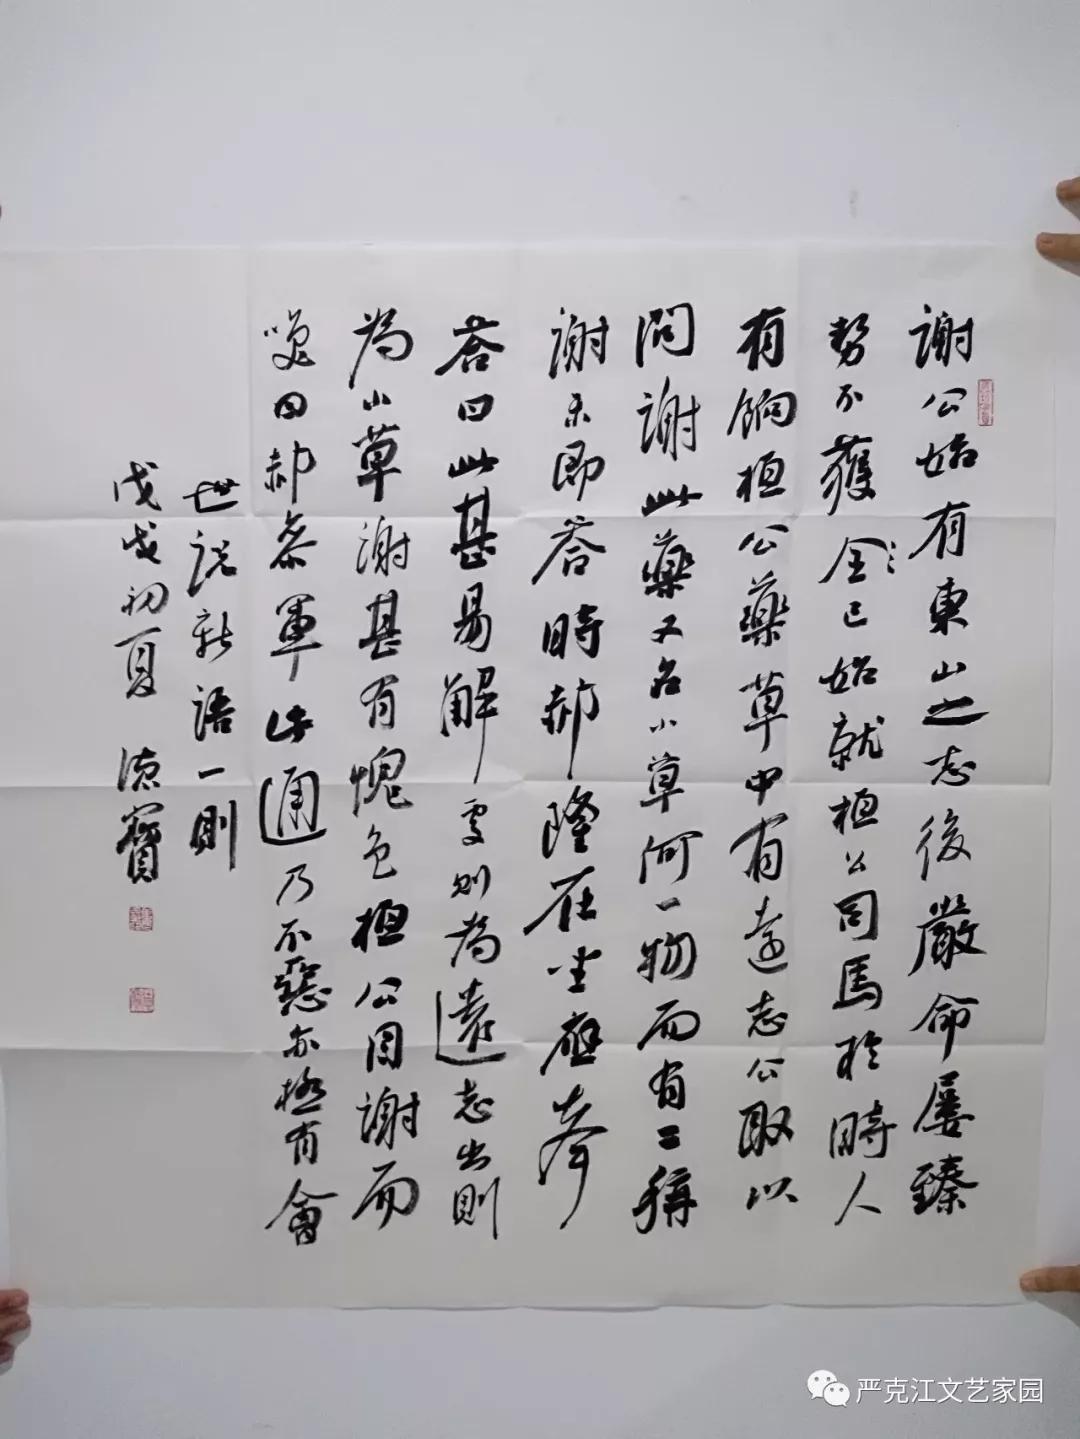 謝公始有東山之志後嚴命屢臻
勢不獲全已始就桓公司馬於時人
有餉桓公藥草中有遠志公取以
問謝此藥又名小草何一物而有二稱
謝未即荅時郝隆在坐應聲
荅曰此甚易解處則為遠志出則
為小草謝甚有愧色桓公目謝而
笑曰郝參軍此通乃不惡亦極有會
世說新語一則
戊戌初夏 德寶
严克江文艺家园